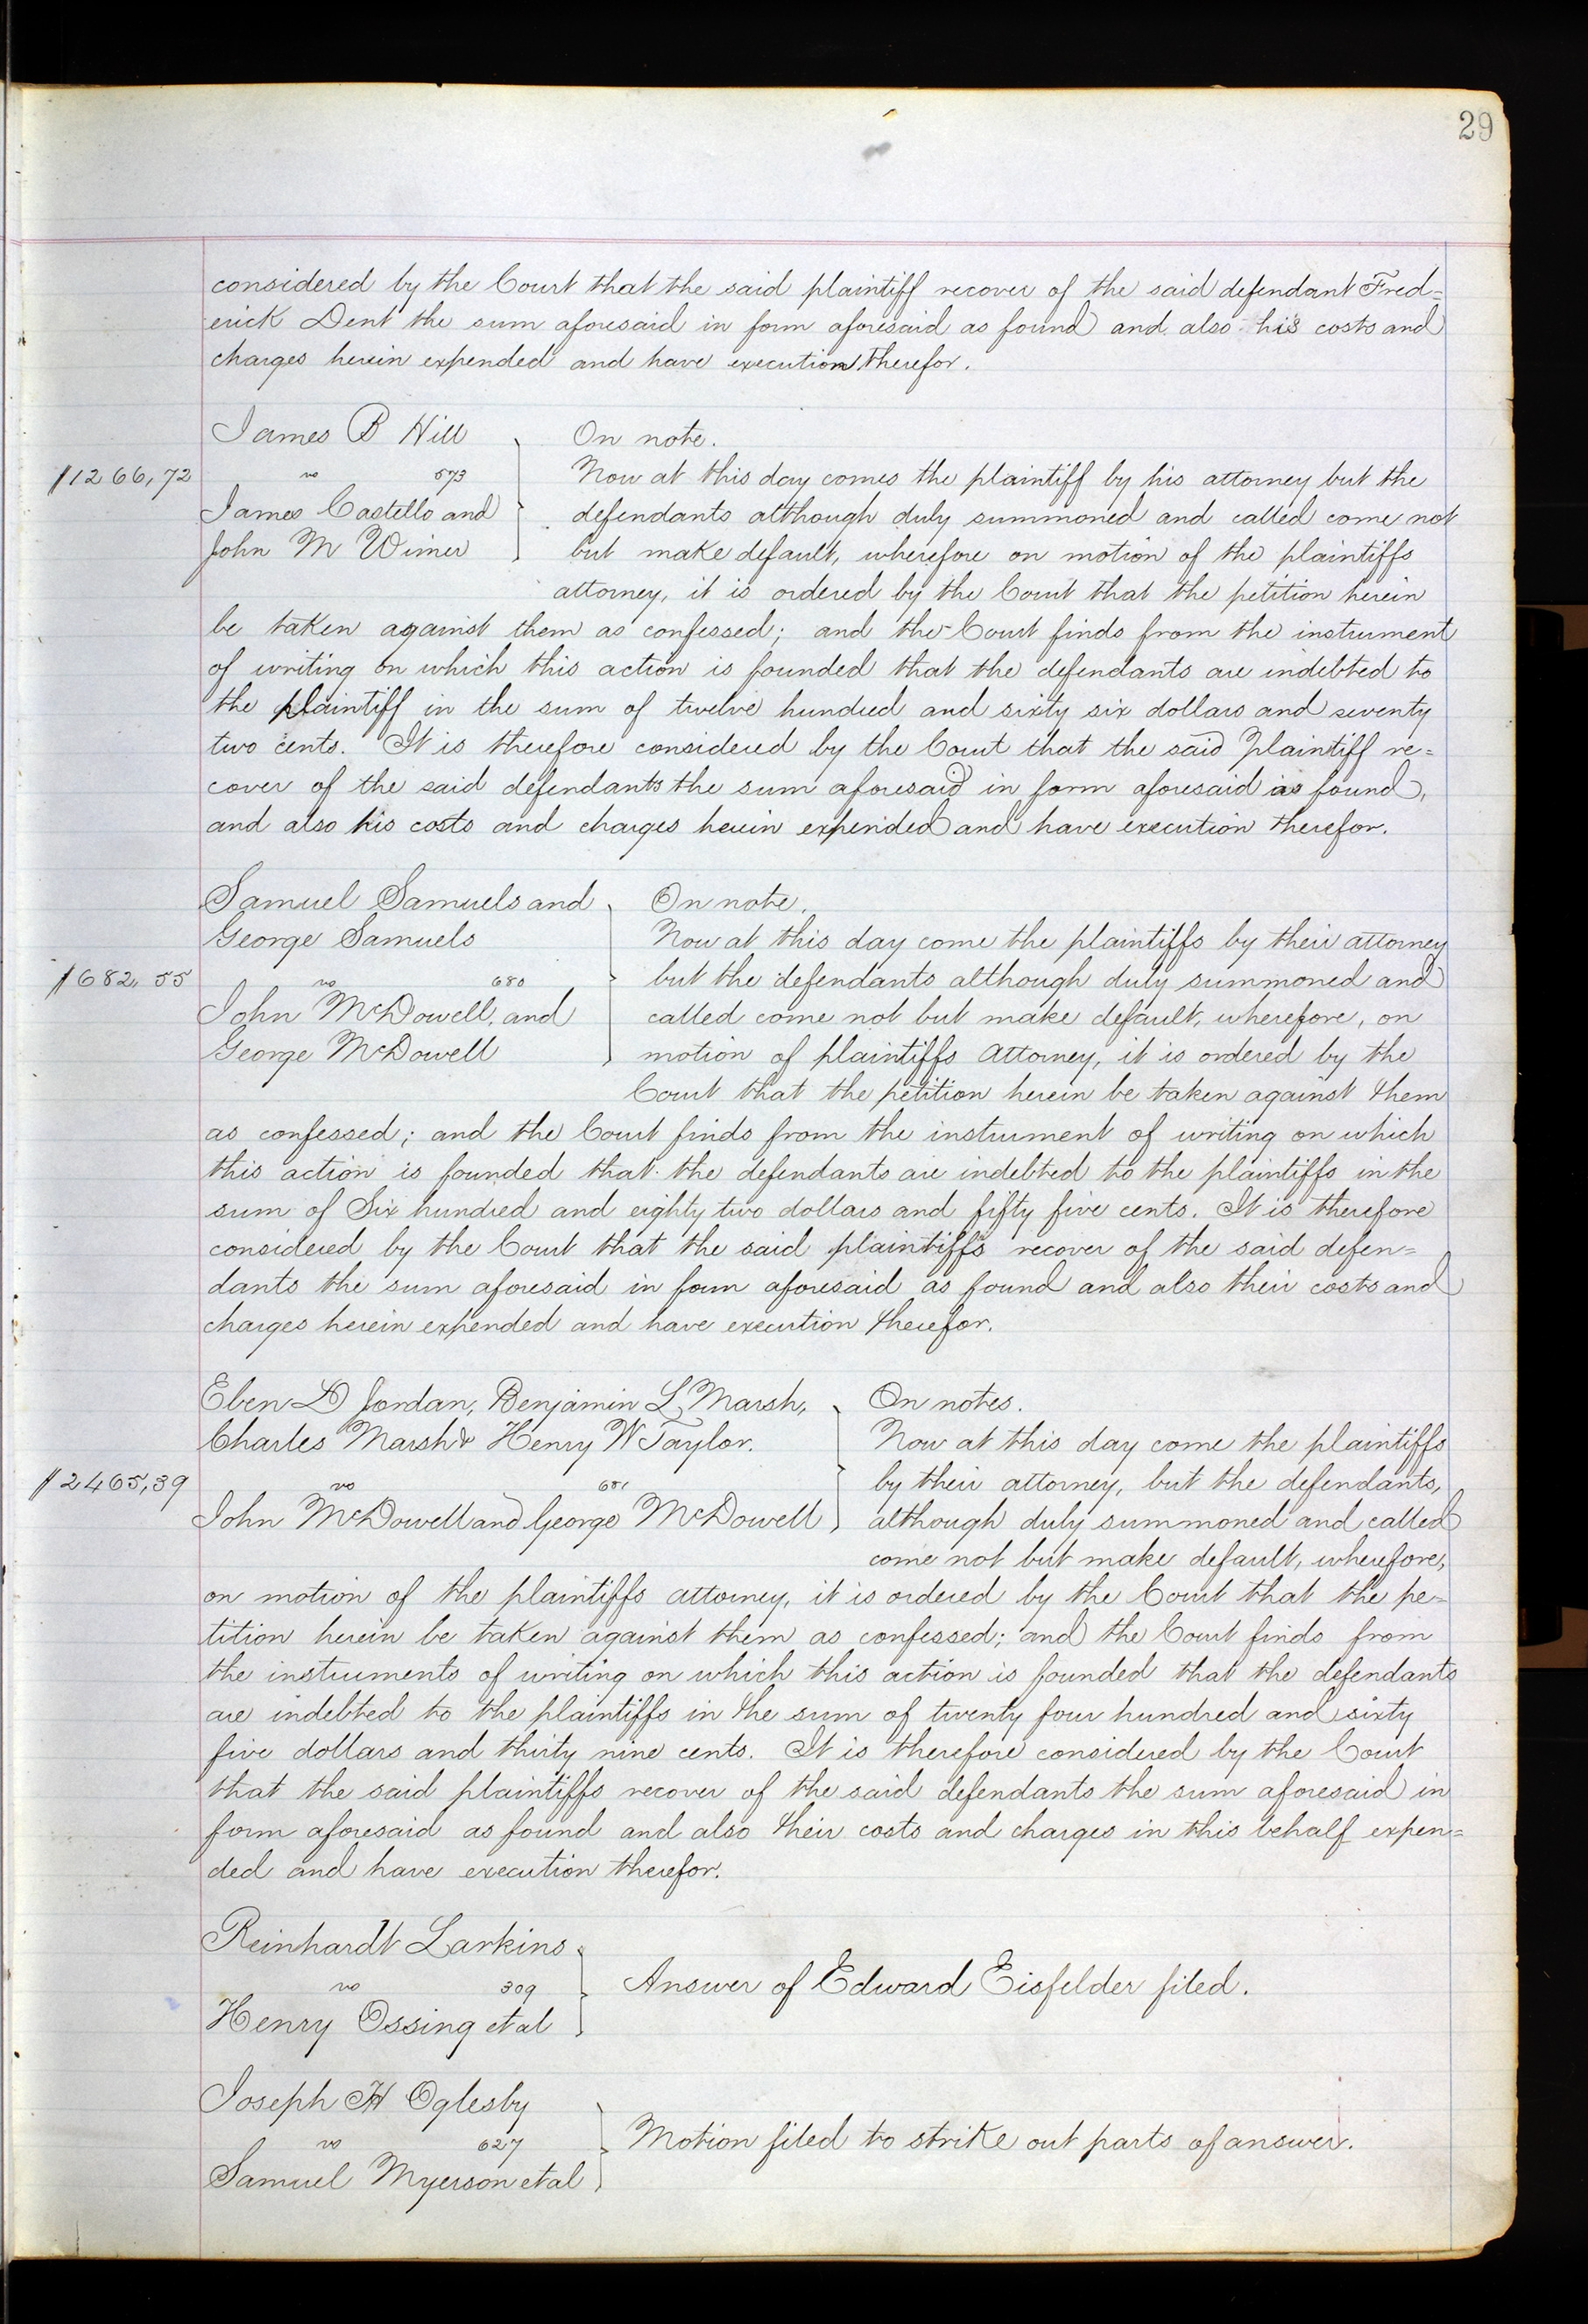 29
considered by the Court that the said plaintiff recover of the said defendant Fred=
erick Dent the sum aforesaid in form aforesaid as found and also his costs and
charges herein expended and have execution therefor.
James B Hill
On note.
$1266,72
vs 573
Now at this day comes the plaintiff by his attorney but the
James Castello and
defendants although duly summoned and called come not
John M Wimer
but make default, wherefore on motion of the plaintiffs
attorney, it is ordered by the Court that the petition herein
be taken against them as confessed; and the Court finds from the instrument
of writing on which this action is founded that the defendants are indebted to
the plaintiff in the sum of twelve hundred and sixty six dollars and seventy
two cents. It is therefore considered by the Court that the said plaintiff re=
cover of the said defendants the sum aforesaid in form aforesaid as found,
and also his costs and charges herein expended and have execution therefor.
Samuel Samuels and
On note.
George Samuels
Now at this day come the plaintiffs by their attorney
$682,55
vs 680
but the defendants although duly summoned and
John McDowell, and
called come not but make default, wherefore, on
George McDowell
motion of plaintiffs attorney, it is ordered by the
Court that the petition herein be taken against them
as confessed; and the Court finds from the instrument of writing on which
this action is founded that the defendants are indebted to the plaintiffs in the
sum of Six hundred and eighty two dollars and fifty five cents. It is therefore
considered by the Court that the said plaintiffs recover of the said defen=
dants the sum aforesaid in form aforesaid as found and also their costs and
charges herein expended and have execution therefor.
Eben D Jordan, Benjamin L Marsh,
On notes.
Charles Marsh & Henry W Taylor.
Now at this day come the plaintiffs
$2465,39
vs 681
by their attorney, but the defendants,
John McDowell and George McDowell
although duly summoned and called
come not but make default, wherefore,
on motion of the plaintiffs attorney, it is ordered by the Court that the pe=
tition herein be taken against them as confessed; and the Court finds from
the instruments of writing on which this action is founded that the defendants
are indebted to the plaintiffs in the sum of twenty four hundred and sixty
five dollars and thirty nine cents. It is therefore considered by the Court
that the said plaintiffs recover of the said defendants the sum aforesaid in
form aforesaid as found and also their costs and charges in this behalf expen=
ded and have execution therefor.
Reinhardt Larkins
vs 309
Answer of Edward Eisfelder filed.
Henry Ossing et al
Joseph H Oglesby
vs 627
Motion filed to strike out parts of answer.
Samuel Myerson et al